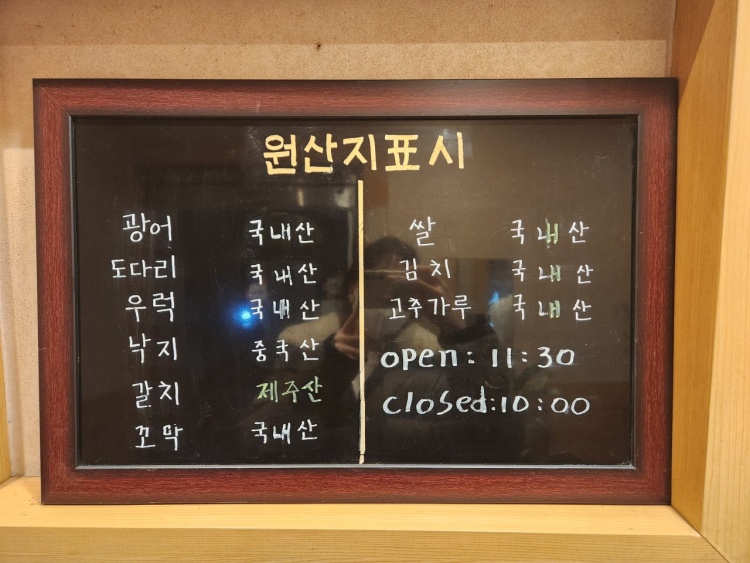 원산지표시
광어 국내산
도다리 국내산
우럭 국내산
낙지 중국산
갈치 제주산
꼬막 국내산
쌀 국내산
김치 국내산
고추가루 국내산
open: 11:30
closed:10:00